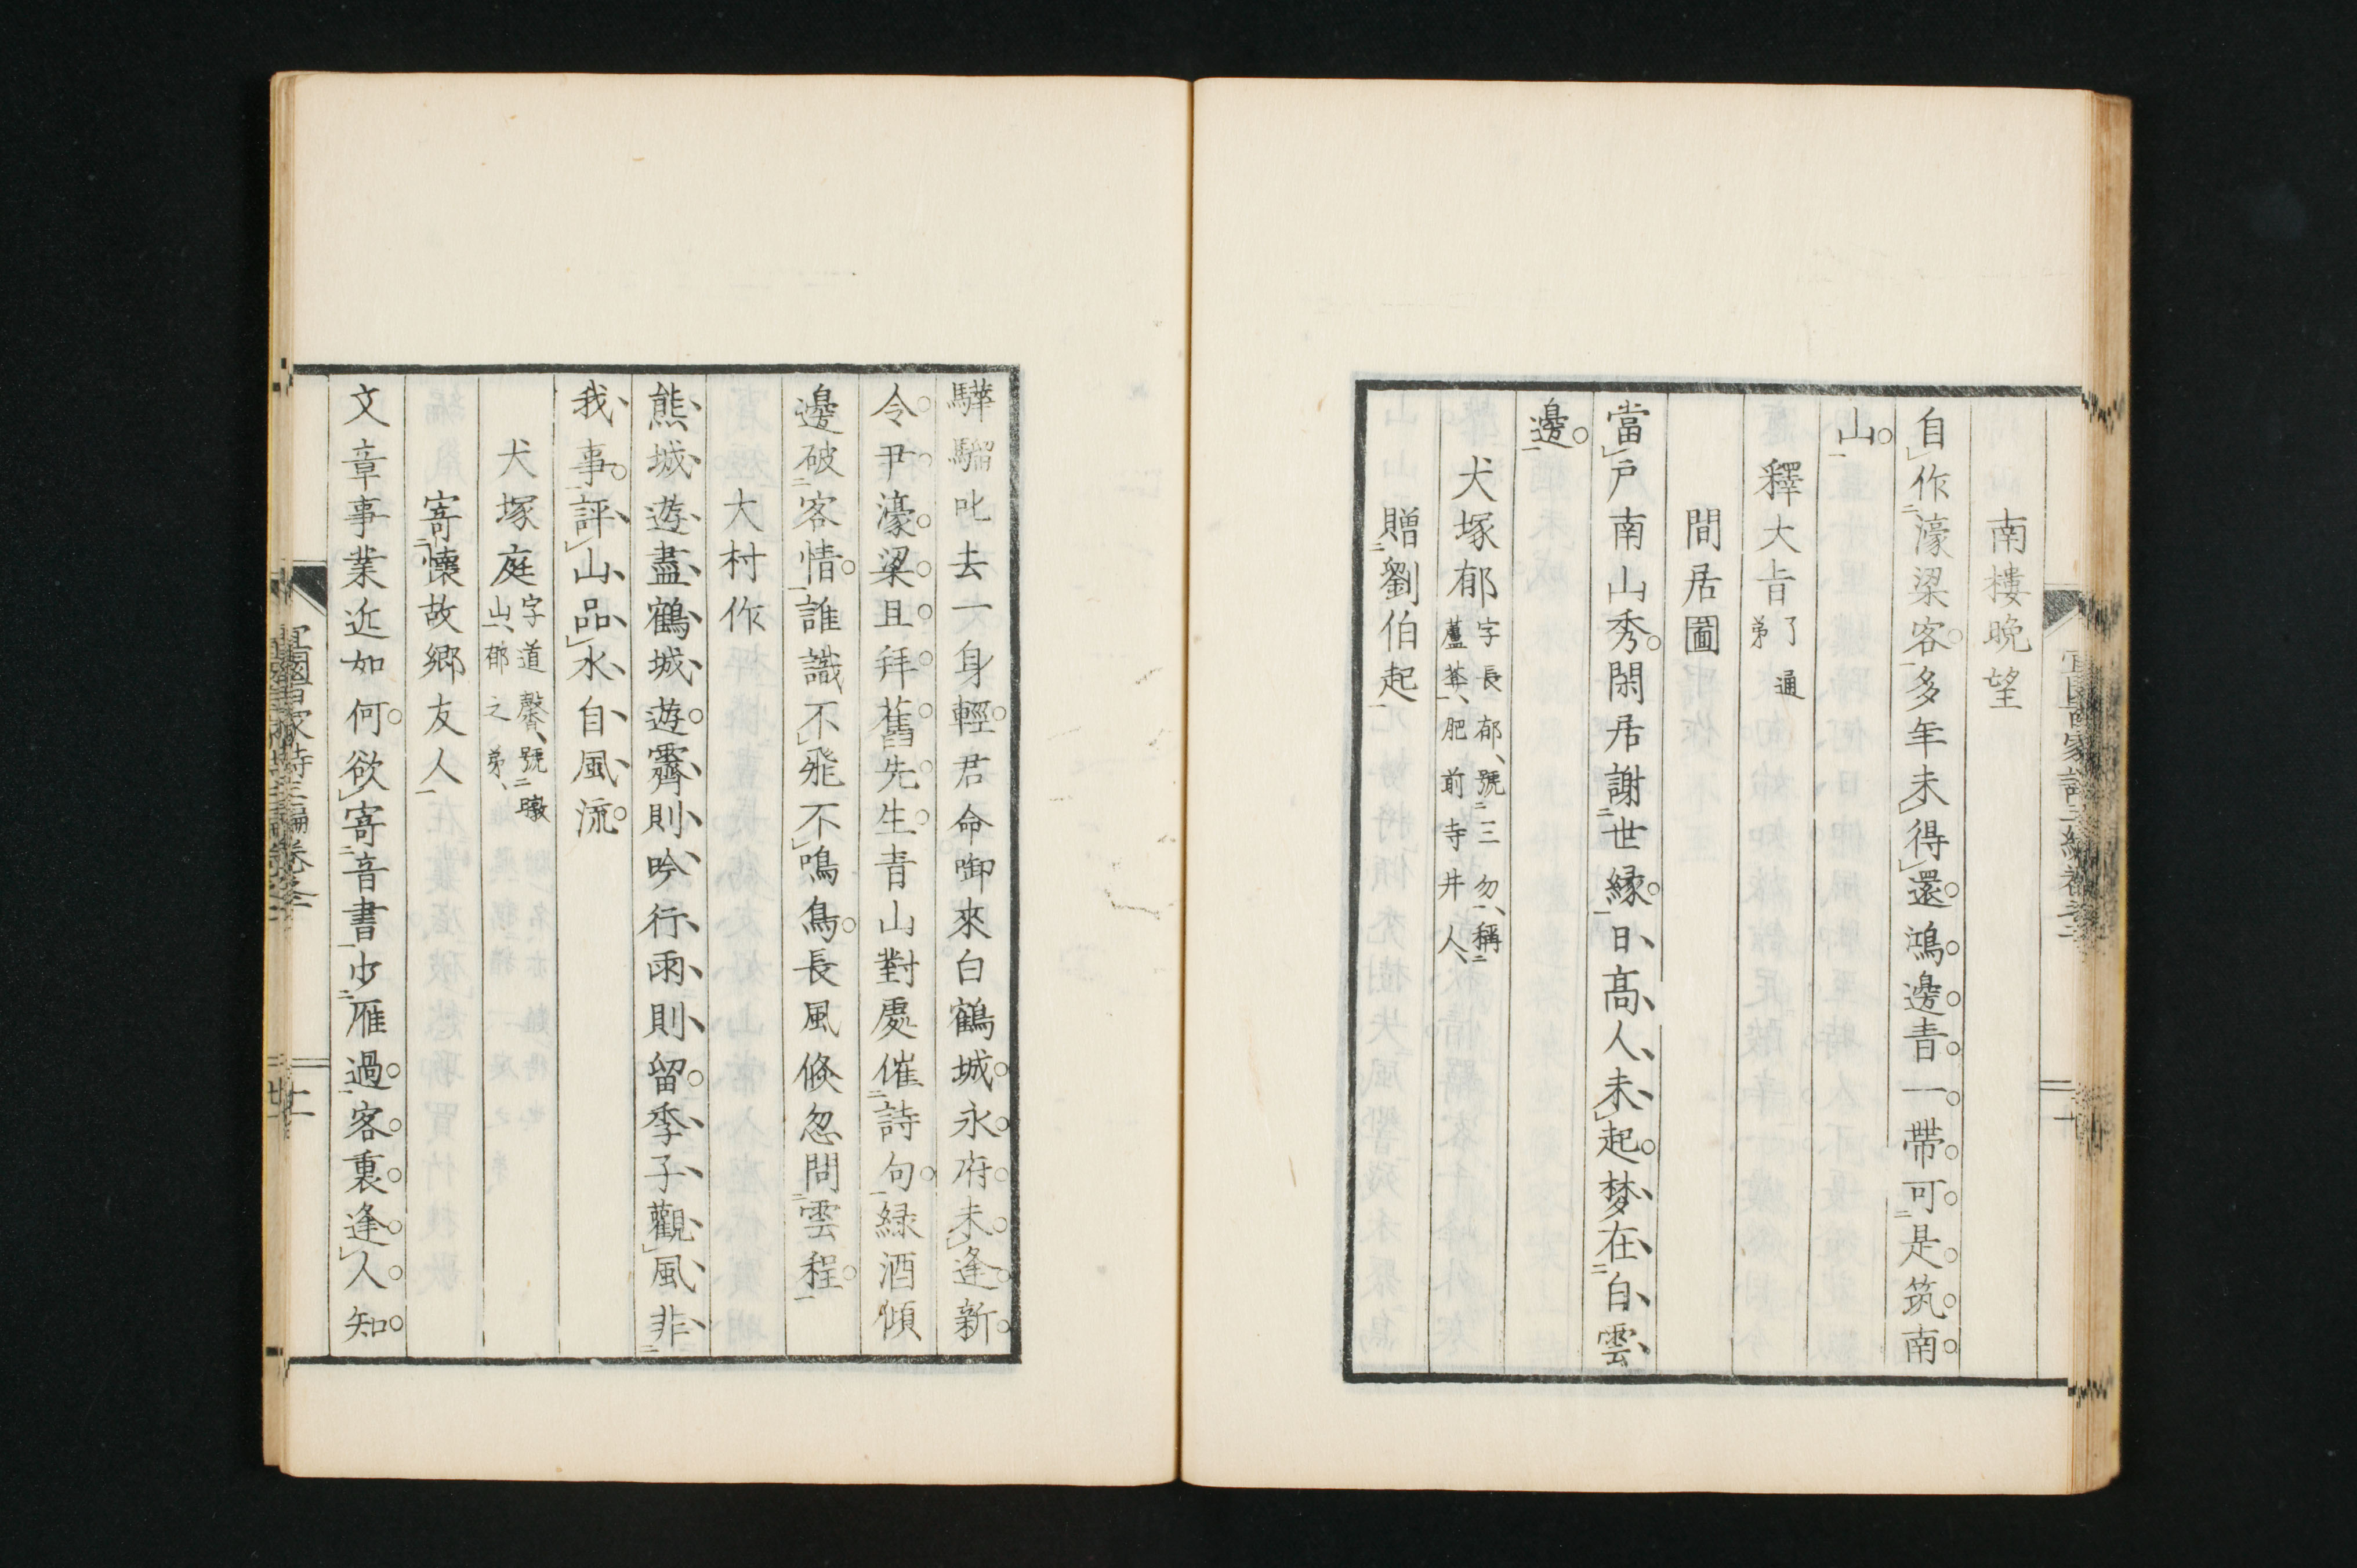 南樓晚望
自作濠梁客多年未得還鴻邊青一帶可是筑南
山
釋大旹 了通弟
間居圖
當戶南山秀閑居謝世緣日高人未起梦在白雲
邊
犬塚郁 字長郁號三勿稱
蘆葊肥前寺井人
贈劉伯起
驊騮叱去一身輕君命啣來白鶴城永府未逢新
令尹濠梁且拜舊先生青山對處催詩句緑酒傾
邊破客情誰識不飛不鳴鳥長風倏忽問雲程
大村作
熊城遊盡鶴城遊霽則吟行雨則留季子觀風非
我事評山品水自風流
犬塚庭 字道馨號暾
山郁之弟
寄懷故鄉友人
文章事業近如何欲寄音書少雁過客裏逢人知